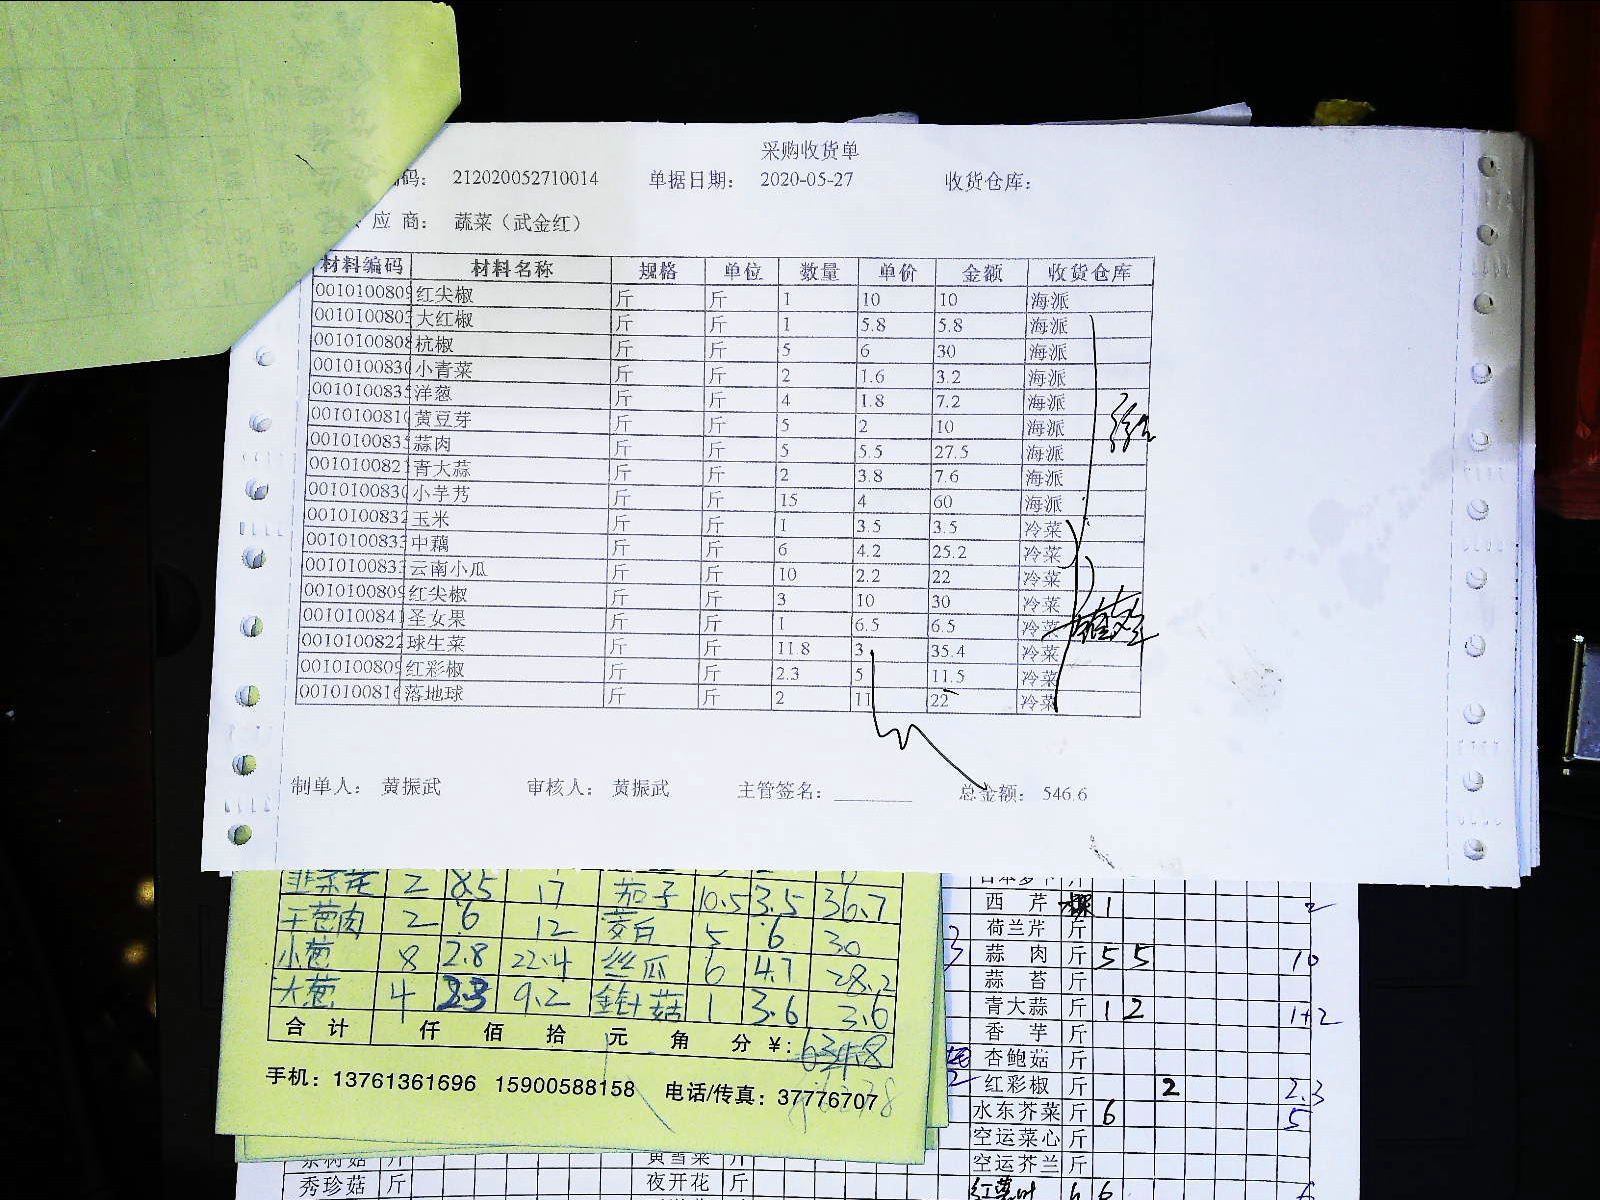 采购收货单
码: 212020052710014 单据日期: 2020-05-27 收货仓库:
应 商: 蔬菜（武金红）
材料编码 材料名称 规格 单位 数量 单价 金额 收货仓库
0010100809 红尖椒 斤 斤 1 10 10 海派
001010080 大红椒 斤 斤 1 5.8 5.8 海派
0010100808 杭椒 斤 斤 5 6 30 海派
001010083 小青菜 斤 斤 2 1.6 3.2 海派
001010083 洋葱 斤 斤 4 1.8 7.2 海派
001010081 黄豆芽 斤 斤 5 2 10 海派
001010083 蒜肉 斤 斤 5 5.5 27.5 海派
001010082 青大蒜 斤 斤 2 3.8 7.6 海派
001010083 小芋艿 斤 斤 15 4 60 海派
001010083 玉米 斤 斤 1 3.5 3.5 冷菜
001010083 中藕 斤 斤 6 4.2 25.2 冷菜
001010083 云南小瓜 斤 斤 10 2.2 22 冷菜
001010080 红尖椒 斤 斤 3 10 30 冷菜
001010084 圣女果 斤 斤 1 6.5 6.5 冷菜
001010082 球生菜 斤 斤 11.8 3 35.4 冷菜
001010080 红彩椒 斤 斤 2.3 5 11.5 冷菜
001010081 落地球 斤 斤 2 11 22 冷菜
制单人: 黄振武 审核人: 黄振武 主管签名: 总金额: 546.6
韭菜花 2 8.5 17 茄子 10.5 3.5 36.7
干葱肉 2 6 12 茭白 5 6 30
小葱 8 2.8 22.4 丝瓜 6 4.7 28.2
大葱 4 2.3 9.2 金针菇 1 3.6 3.6
合 计 仟 佰 拾 元 角 分 ¥: 634.8
手机: 13761361696 15900588158 电话/传真: 37776707
西 芹 1 2
荷兰芹 斤
蒜 肉 斤 5 5 10
蒜 苔 斤
青大蒜 斤 1 2 1+2
香 芋 斤
杏鲍菇 斤
红彩椒 斤 2 2.3
水东芥菜 斤 6 5
空运菜心 斤
空运芥兰 斤
秀珍菇 斤 夜开花 斤